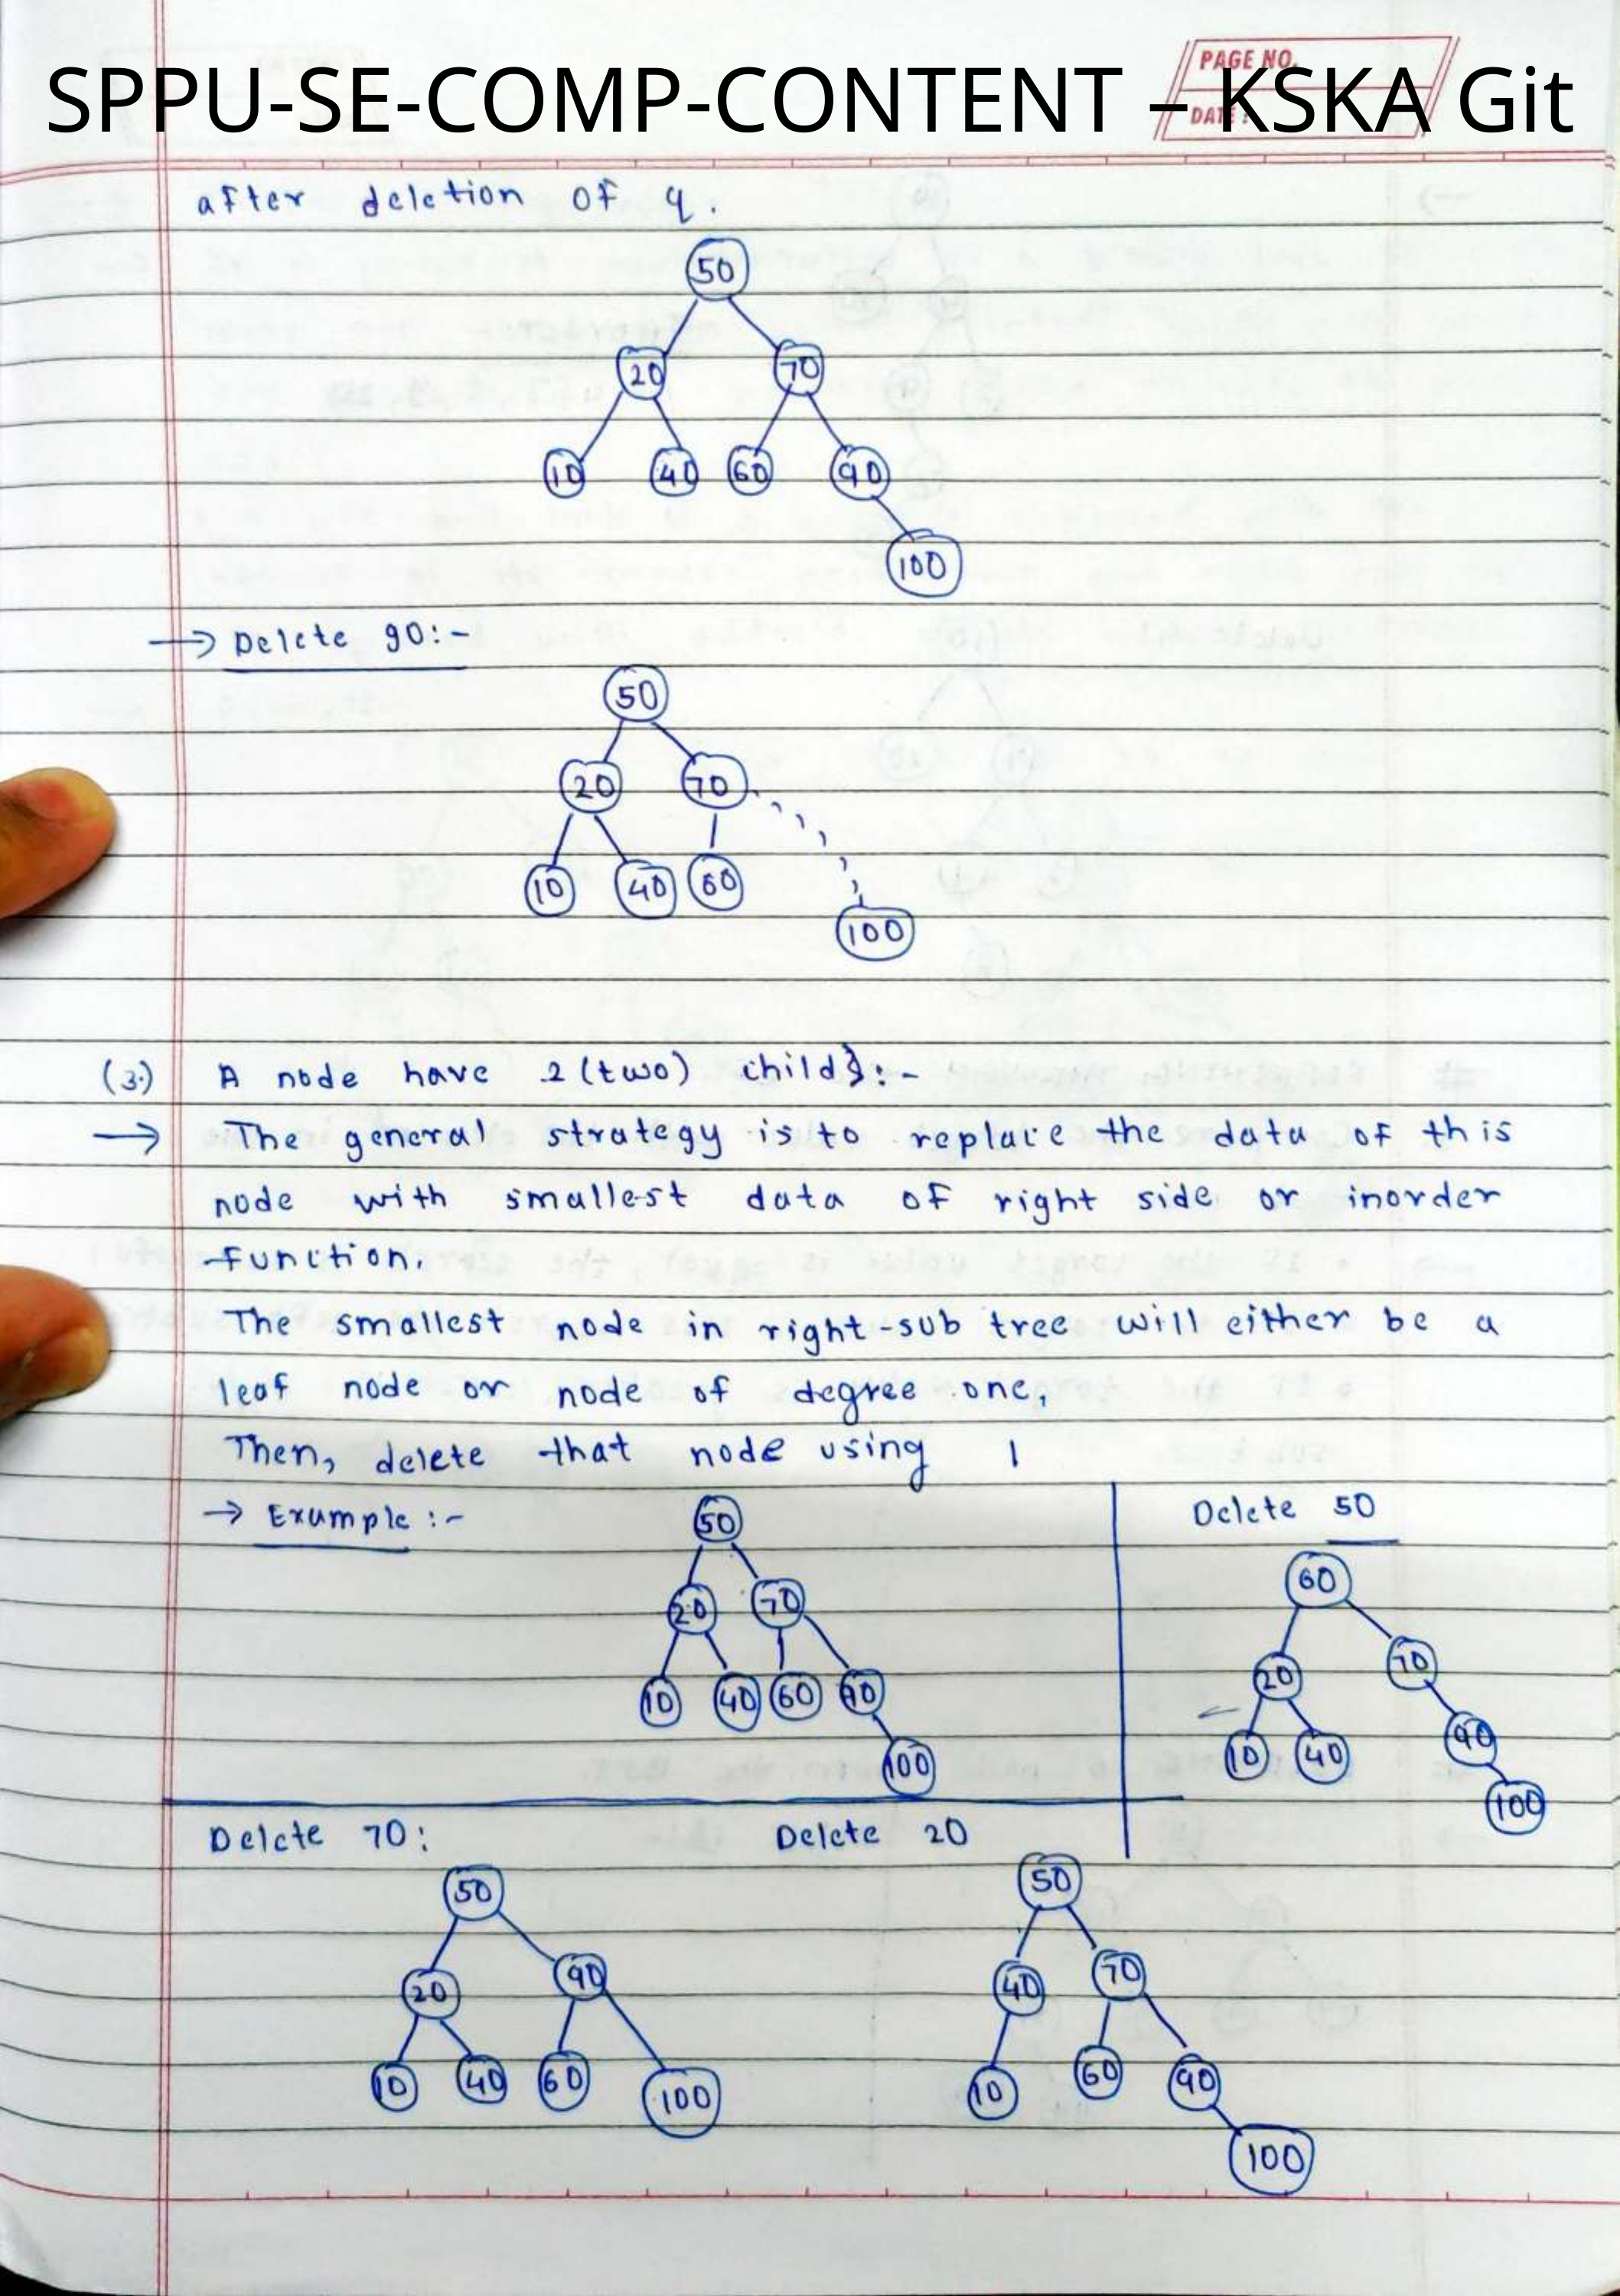 SPPU-SE-COMP-CONTENT – KSKA Git
PAGE NO.
DATE:
after deletion of 9.
50
20 70
10 40 60 90
100
→ Delete 90:-
50
20 70
10 40 60
100
(3.) A node have 2 (two) child}:-
→ The general strategy is to replace the data of this
node with smallest data of right side or inorder
function.
The smallest node in right-sub tree will either be a
leaf node or node of degree one,
Then, delete that node using 1
→ Example :-
50
20 70
10 40 60 90
100
Delete 50
60
20 70
10 40 90
100
Delete 70:
50
20 90
10 40 60 100
Delete 20
50
40 70
10 60 90
100